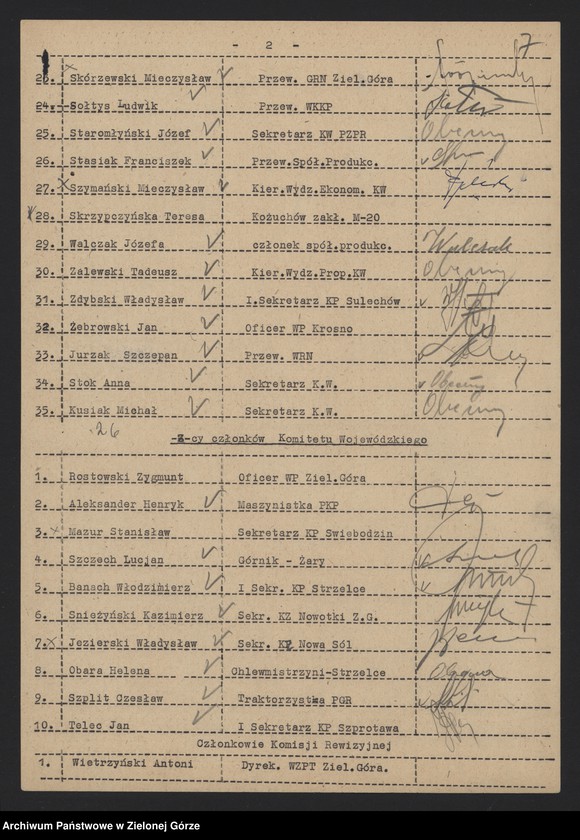 - 2 -
7
23. Skórzewski Mieczysław Przew. GRN Ziel.Góra
24. Sołtys Ludwik Przew. WKKP
25. Staromłyński Józef Sekretarz KW PZPR Obecny
26. Stasiak Franciszek Przew.Spół.Produkc.
27. Szymański Mieczysław Kier.Wydz.Ekonom. KW
28. Skrzypczyńska Teresa Kożuchów zakł. M-20
29. Walczak Józefa członek spół.produkc. Walczak
30. Zalewski Tadeusz Kier.Wydz.Prop.KW Obecny
31. Zdybski Władysław I.Sekretarz KP Sulechów
32. Żebrowski Jan Oficer WP Krosno
33. Jurzak Szczepan Przew. WRN
34. Stok Anna Sekretarz K.W. Obecny
35. Kusiak Michał Sekretarz K.W. Obecny
26
-Z-cy członków Komitetu Wojewódzkiego
1. Rostowski Zygmunt Oficer WP Ziel.Góra
2. Aleksander Henryk Maszynistka PKP
3. Mazur Stanisław Sekretarz KP Swiebodzin
4. Szczech Lucjan Górnik - Żary
5. Banach Włodzimierz I Sekr. KP Strzelce
6. Snieżyński Kazimierz Sekr. KZ Nowotki Z.G.
7. Jezierski Władysław Sekr. KP Nowa Sól
8. Obara Helena Chlewmistrzyni-Strzelce
9. Szplit Czesław Traktorzystka PGR
10. Telec Jan I Sekretarz KP Szprotawa
Członkowie Komisji Rewizyjnej
1. Wietrzyński Antoni Dyrek. WZPT Ziel.Góra.
Archiwum Państwowe w Zielonej Górze